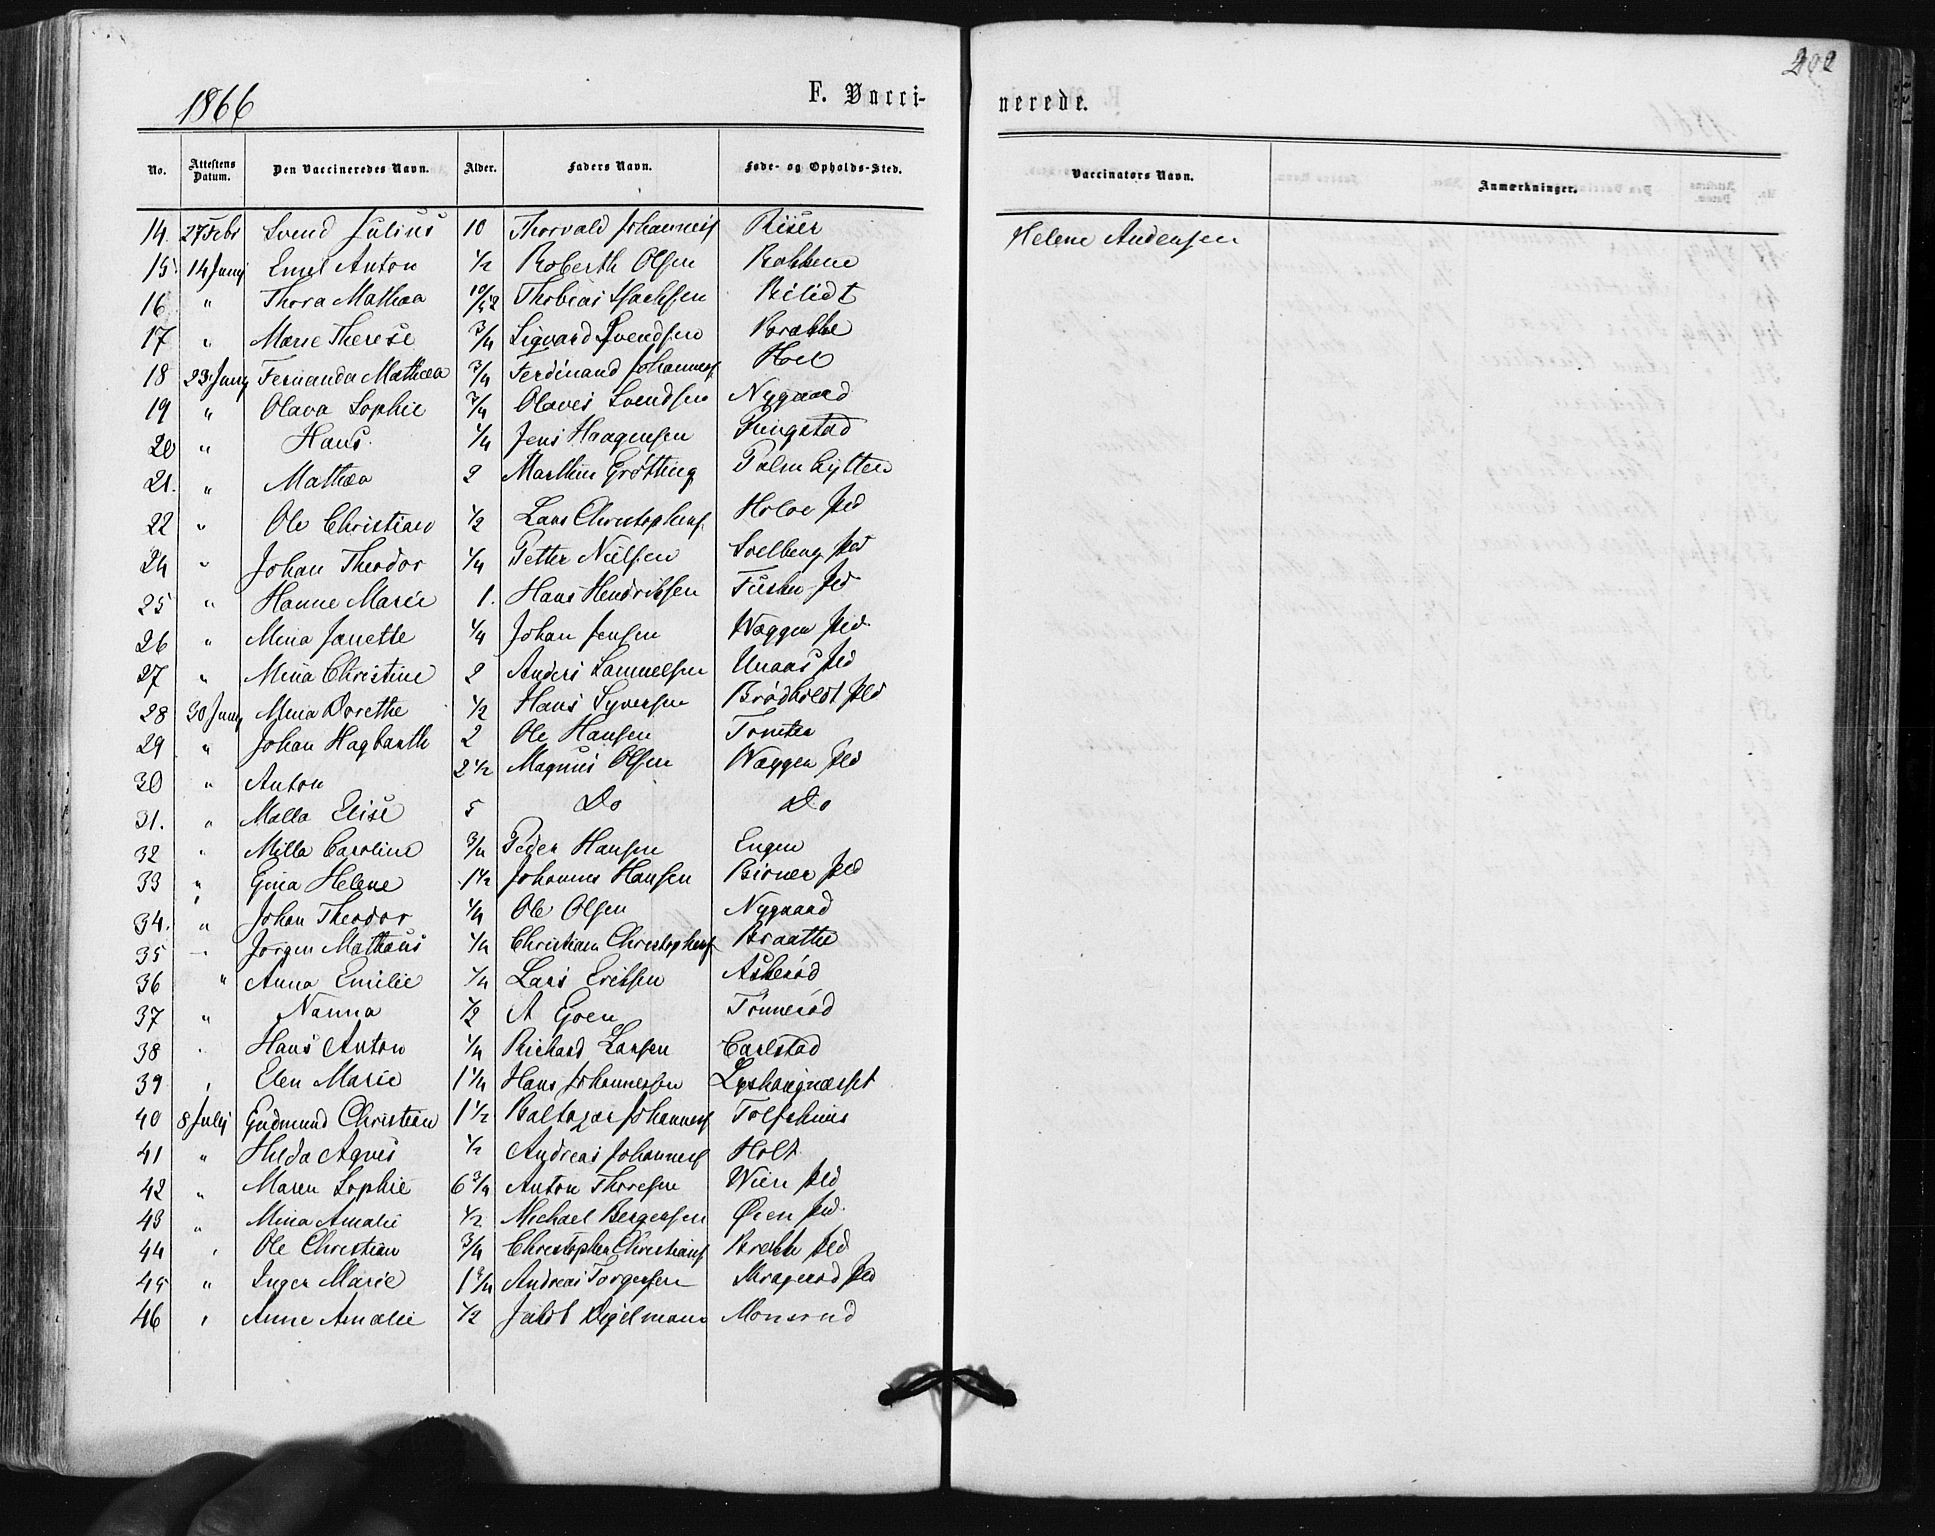 1866 F. Vacci-
No. Attestens Datum. Den Vaccineredes Navn. Alder. Faders Navn. Føde- og Opholds-Sted.
14. 27 Febr Svend Julius 10 Thorvald Johannesf Riser
15 14 Juny Emil Anton 1/2 Roberth Olsen Bakkene
16 " Thora Mathea 10/12 Thobias Isachsen Bilidt
17 " Marie Therese 3/4 Sigvard Svendsen Brække
18 23 Juny Fernanda Mathea 3/4 Ferdinand Johannesf Hoel
19 " Olava Sophie 3/4 Olaves Svendsen Nygaard
20 " Hans. 1/4 Jens Haagensen Ringstad
21. " Mathea 2 Marthin Grøtting Palm hytten
22 " Ole Christian 1/2 Lars Christophersf Holoe Eed
24 " Johan Theodor 1/4 Petter Nielsen Solberg
25 " Hanne Marie 1. Hans Hendriksen
26 " Mina Janette 1/4 Johan Jensen Wæggen
27 " Mina Christine 2 Anders Samuelsen
28 30 Juny Mina Dorethe 1/2 Hans Syversen Brødholdt
29 " Johan Hagbarth 2 Ole Hansen Tomter
30 " Anton 2 1/2 Magnus Olsen Wæggen
31. " Malla Elise 5 Do Do
32 " Milla Caroline 3/4 Peder Hansen Engen
33 " Gina Helene 1 1/2 Johannes Hansen
34. " Johan Theodor 1/4 Ole Olsen Nygaard
35 " Jørgen Matheus 1/4 Christian Christophersf Braathe
36 " Anna Emilie 1/4 Lars Eriksen Askerød
37 " Nanna 1/2 A Goen Tønnerød
38 " Hans Anton 1/4 Richard Larsen Carlstad
39 " Elen Marie 1 1/4 Hans Johannessen Lyshaugnæsset
40 8 July Gudmund Christian 1 1/2 Baltazar Johannesf Tolfshuus
41 " Hilda Agnes 1/2 Andreas Johannesf Holt
42 " Maren Sophie 6 3/4 Anton Thoresen Wien
43 " Mina Amalie 1/2 Michael Bergersen Øien
44 " Ole Christian 3/4 Christopher Christiansf Brekke
45 " Inger Marie 1 3/4 Andreas Torgersen Skragerød
46 " Anne Amalie 1/2 Jakob Digelmann Monsrud
202
nerede.
Vaccinators Navn. Anmærkninger.
Helene Andensen